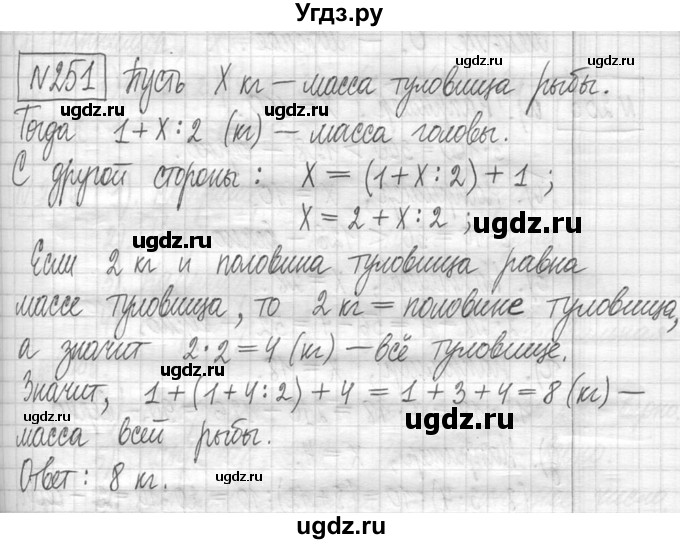 Угдз.ру
№251 Пусть X кг – масса туловища рыбы.
ugdz.ru ugdz.ru
Тогда 1+X:2 (кг) – масса головы.
ugdz.ru
С другой стороны: X = (1+X:2)+1;
X = 2+X:2;
ugdz.ru ugdz.ru
Если 2 кг и половина туловища равна
массе туловища, то 2 кг = половине туловища,
ugdz.ru
а значит 2·2=4 (кг) – всё туловище.
ugdz.ru
Значит, 1+(1+4:2)+4 = 1+3+4=8 (кг) –
ugdz.ru
масса всей рыбы.
ugdz.ru ugdz.ru
Ответ: 8 кг.
ugdz.ru